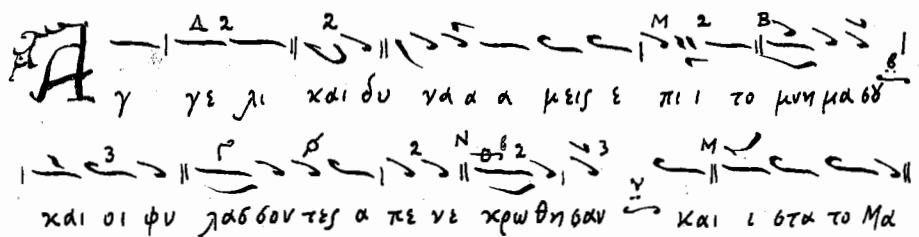 Α γ γε λι και δυ νά α α μεις ε πι ι το μνη μα σου
και οι φυ λασσον τες α πε νε κρω θη σαν και ι στα το Μα